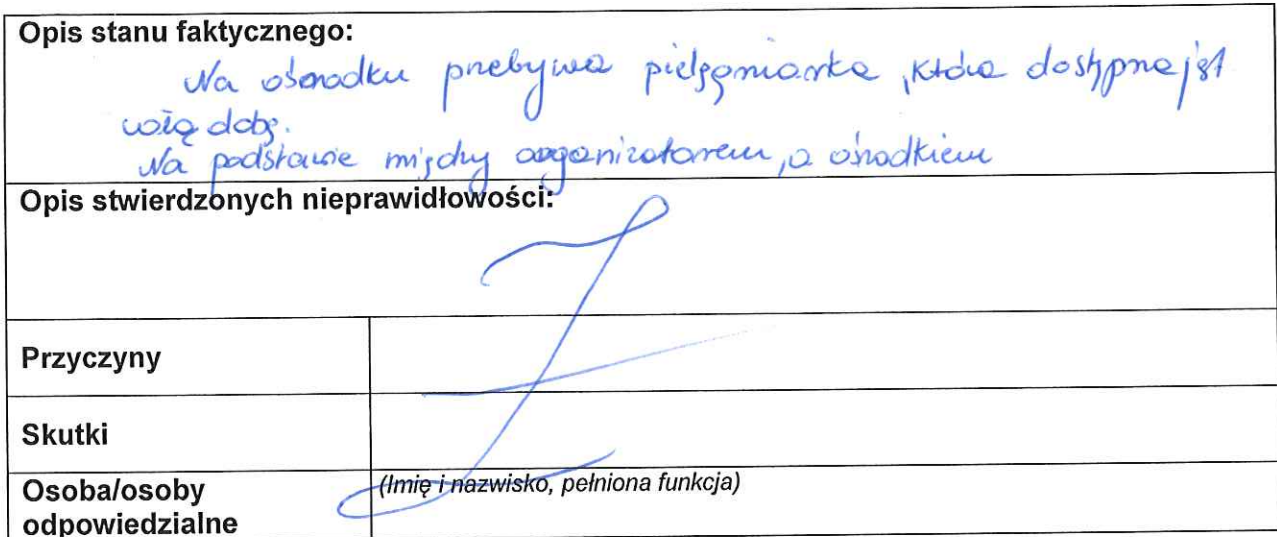 Opis stanu faktycznego:
Na ośrodku przebywa pielęgniarka, która dostępna jest
całą dobę.
Na podstawie między organizatorem, a ośrodkiem
Opis stwierdzonych nieprawidłowości:
Przyczyny
Skutki
Osoba/osoby
odpowiedzialne
(Imię i nazwisko, pełniona funkcja)